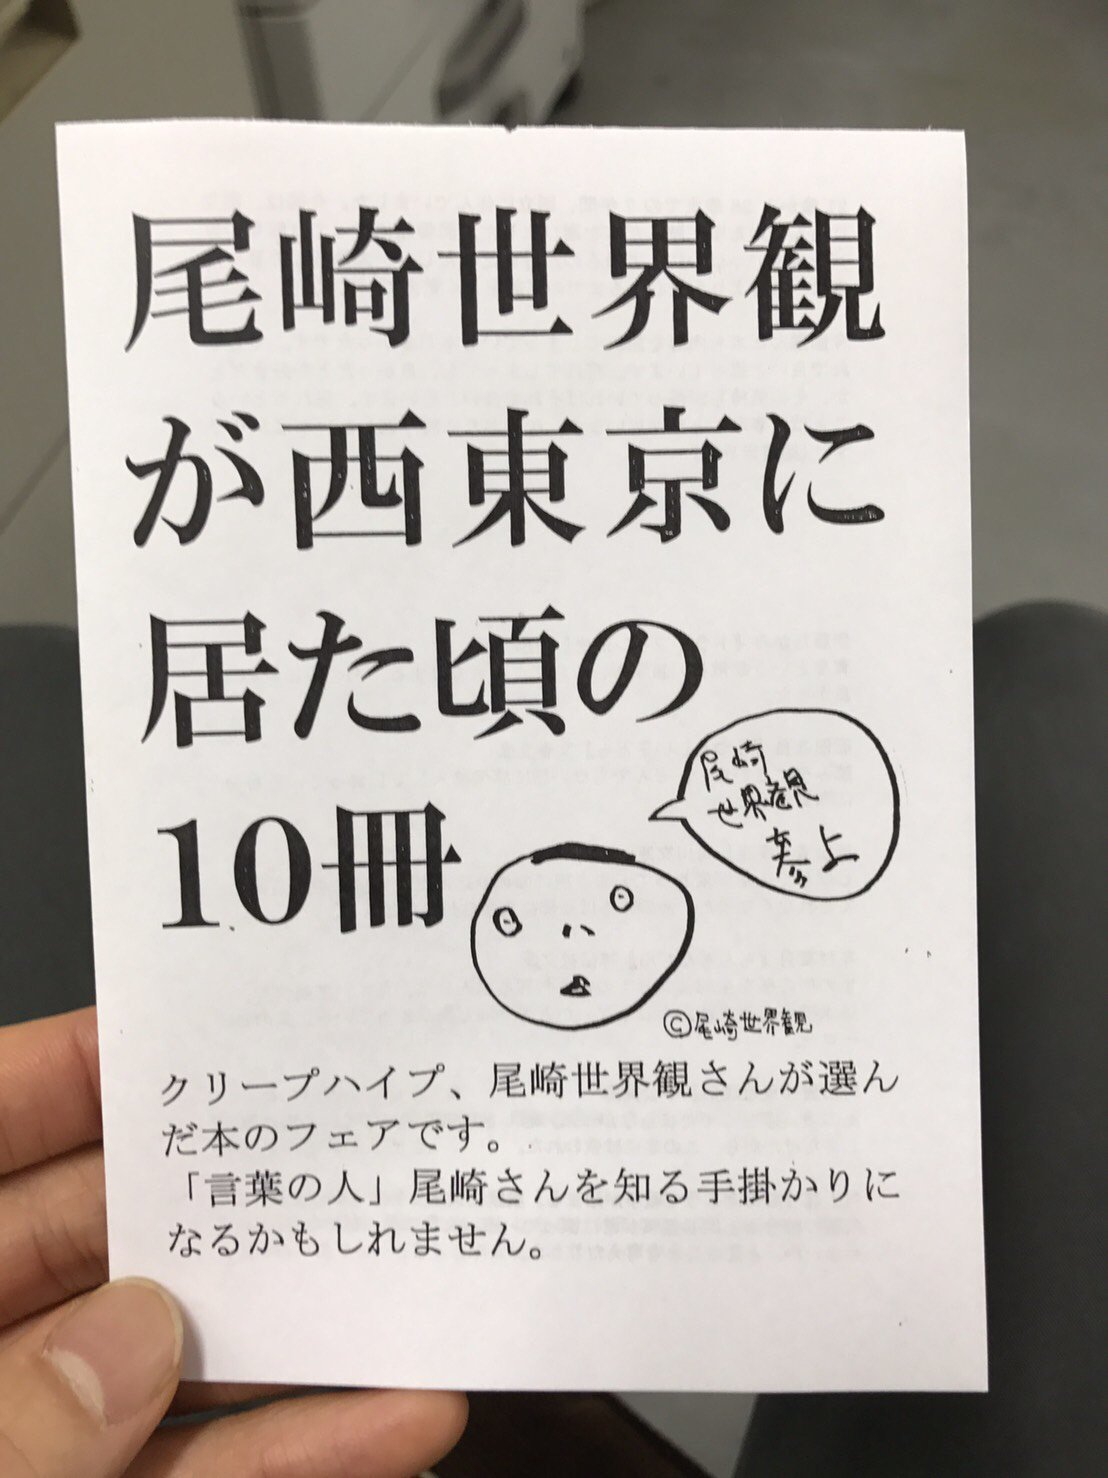 尾崎世界観
が西東京に
居た頃の
10冊
尾崎
世界観
だよ
©尾崎世界観
クリープハイプ、尾崎世界観さんが選ん
だ本のフェアです。
「言葉の人」尾崎さんを知る手掛かりに
なるかもしれません。